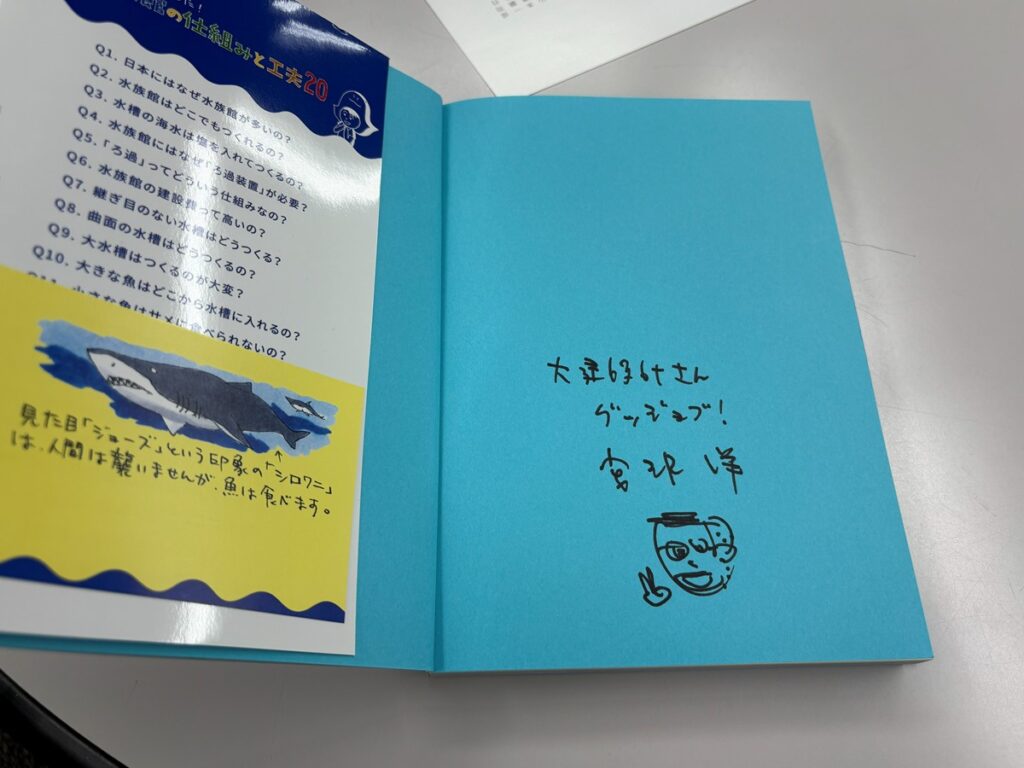 の仕組みと工夫20
Q1. 日本にはなぜ水族館が多いの?
Q2. 水族館はどこでもつくれるの?
Q3. 水槽の海水は塩を入れてつくるの?
Q4. 水族館にはなぜ「ろ過装置」が必要?
Q5. 「ろ過」ってどういう仕組みなの?
Q6. 水族館の建設費って高いの?
Q7. 継ぎ目のない水槽はどうつくる?
Q8. 曲面の水槽はどうつくるの?
Q9. 大水槽はつくるのが大変?
Q10. 大きな魚はどこから水槽に入れるの?
小さな魚はサメに食べられないの?
見た目「ジョーズ」という印象の「シロワニ」
は、人間は襲いませんが、魚は食べます。
さん
グッジョブ!
宮沢 洋